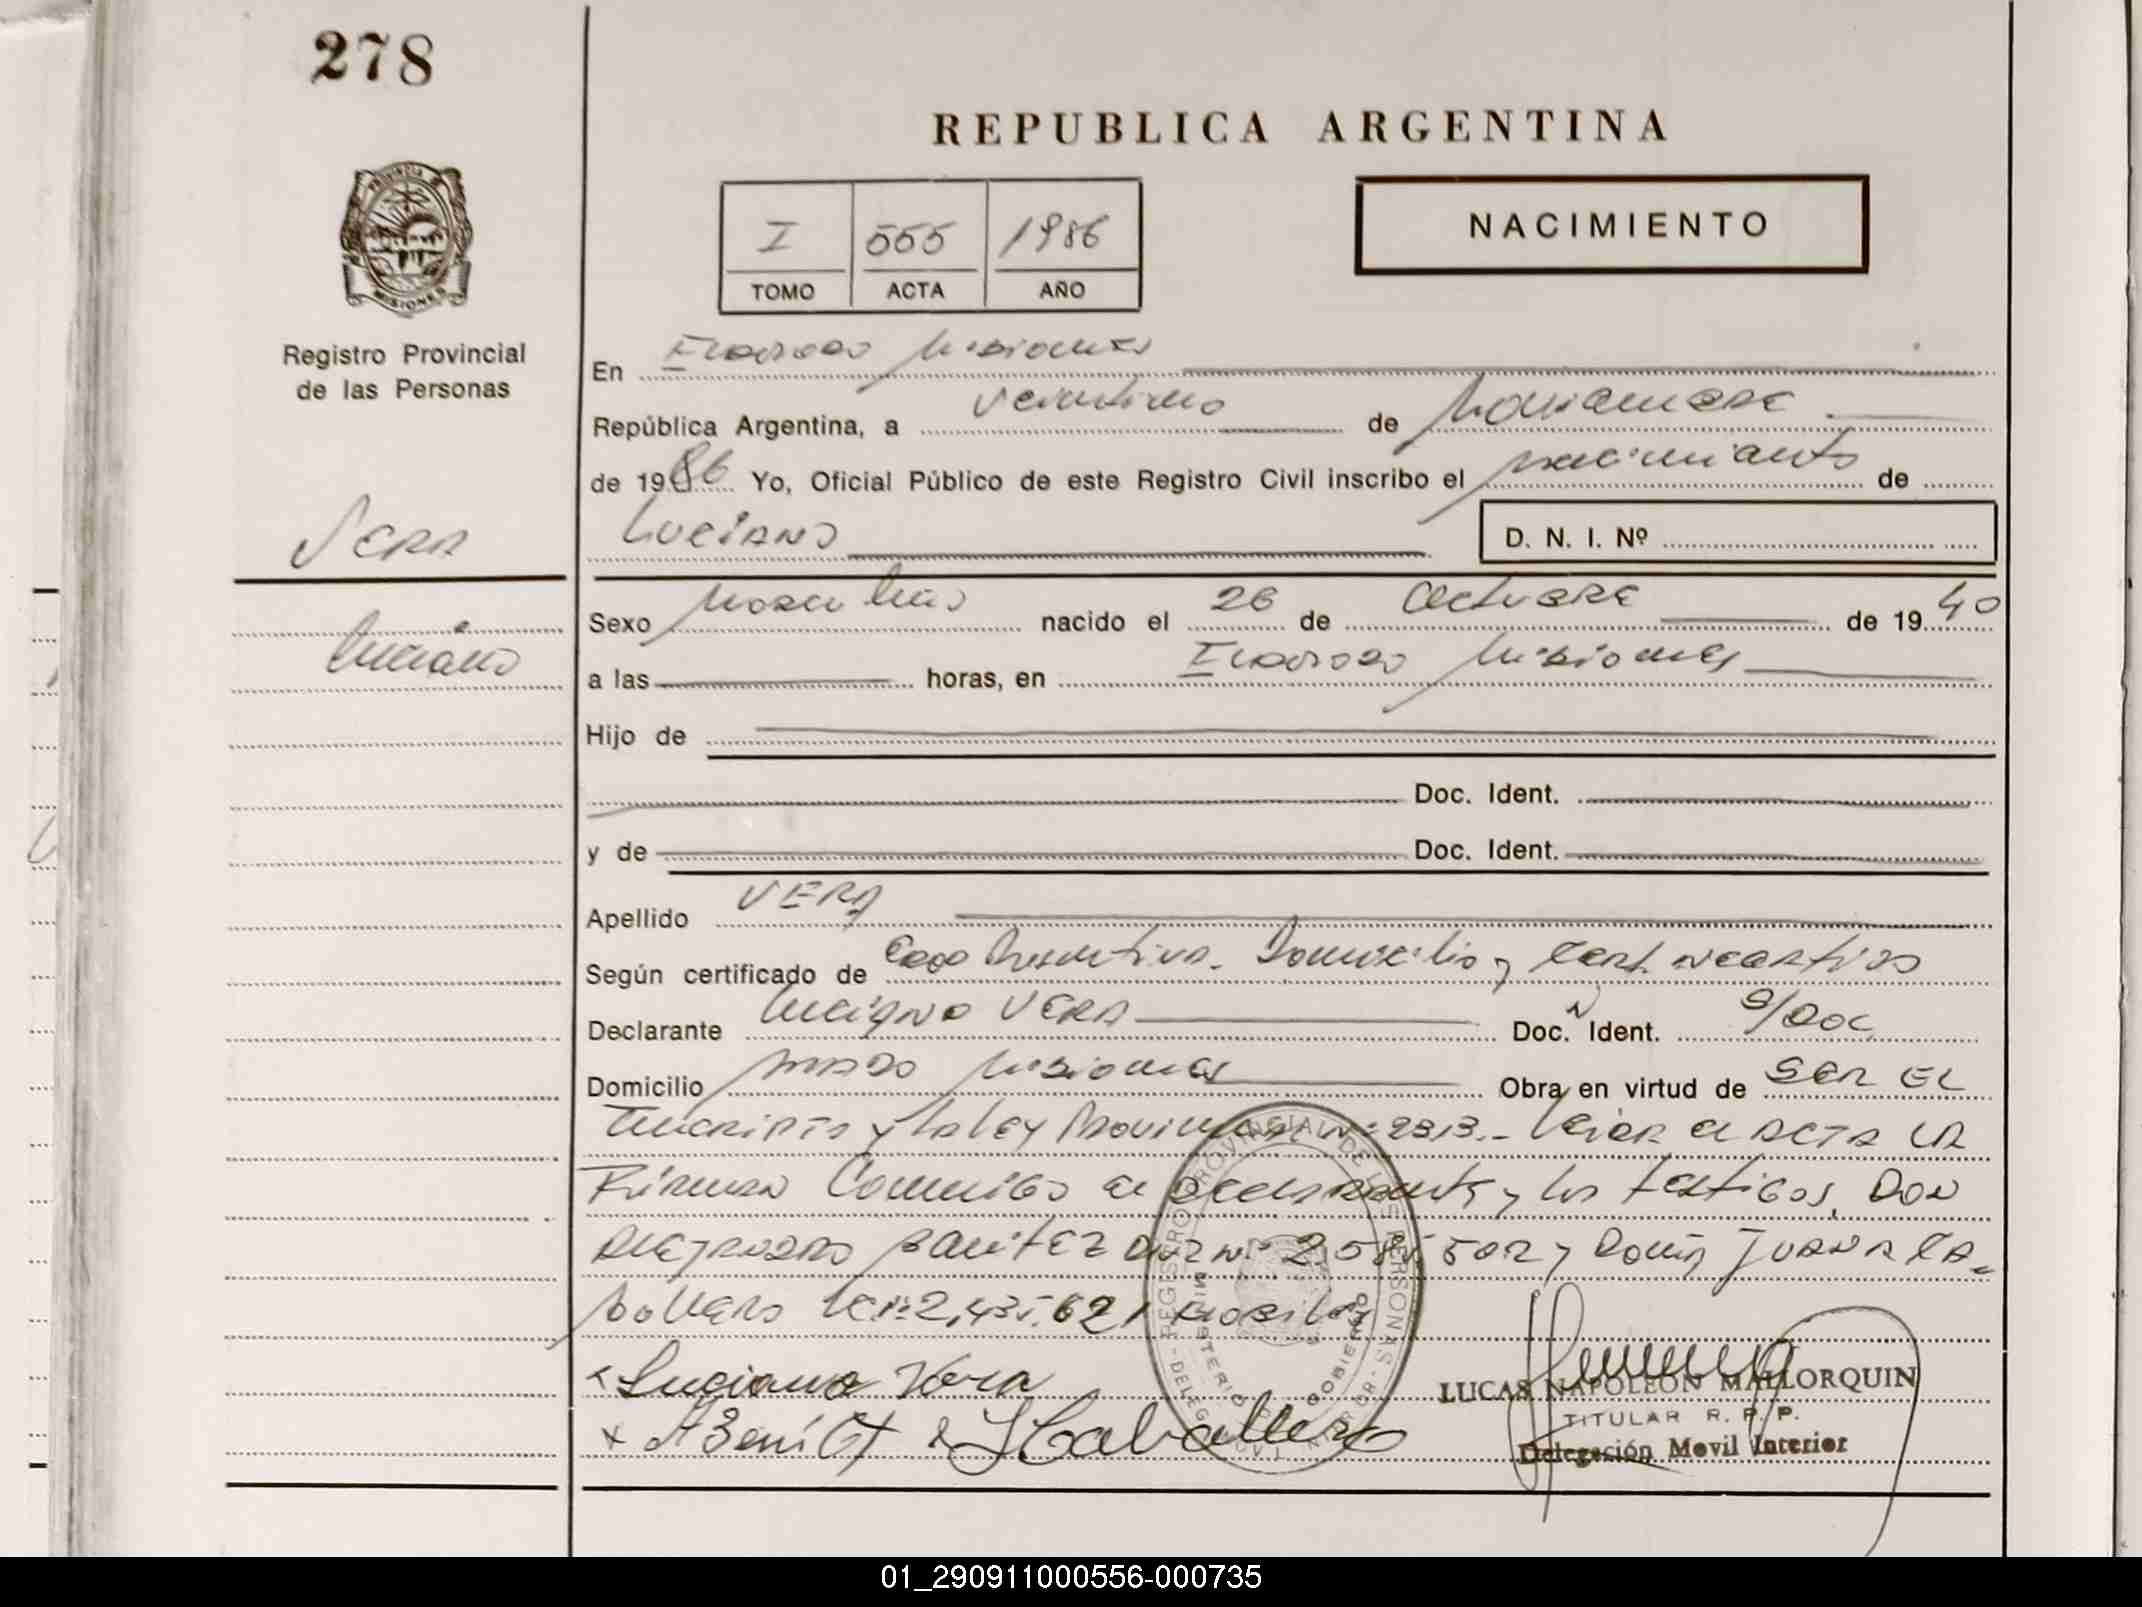 278
REPUBLICA ARGENTINA
NACIMIENTO
I 555 1986
TOMO ACTA AÑO
PROVINCIA DE MISIONES
Registro Provincial
de las Personas
En Eldorado Misiones
República Argentina, a veintiuno de Noviembre
de 1986 Yo, Oficial Público de este Registro Civil inscribo el nacimiento de
VERA
Luciano
D. N. I. Nº
Luciano
Sexo Masculino nacido el 26 de Octubre de 1940
a las horas, en Eldorado Misiones
Hijo de
Doc. Ident.
y de Doc. Ident.
Apellido VERA
Según certificado de Domicilio y
Declarante Luciano VERA Doc. Ident. S/Doc
Domicilio Misiones Obra en virtud de SER EL
Inscripto y la Ley Provincial Nº 2313.- Leída el ACTA LA
Firman Conmigo el Declarante y los testigos, DON
Alejandro Benitez Nº 2.581.502 y Doña JUANA CA-
ballero Nº 2,435.621
Luciano Vera
A Benitez
J Caballero
REGISTRO PROVINCIAL DE LAS PERSONAS
MINISTERIO DE GOBIERNO
LUCAS NAPOLEON MALLORQUIN
TITULAR R. P. P.
Delegación Movil Interior
01_290911000556-000735